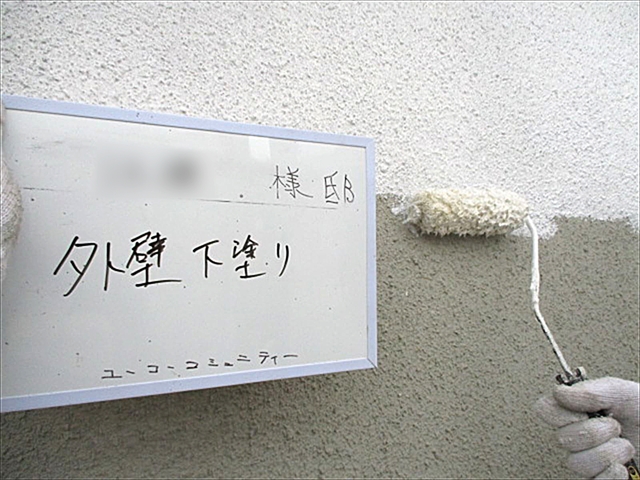 様 邸
外壁 下塗り
ユーコーコミュニティー